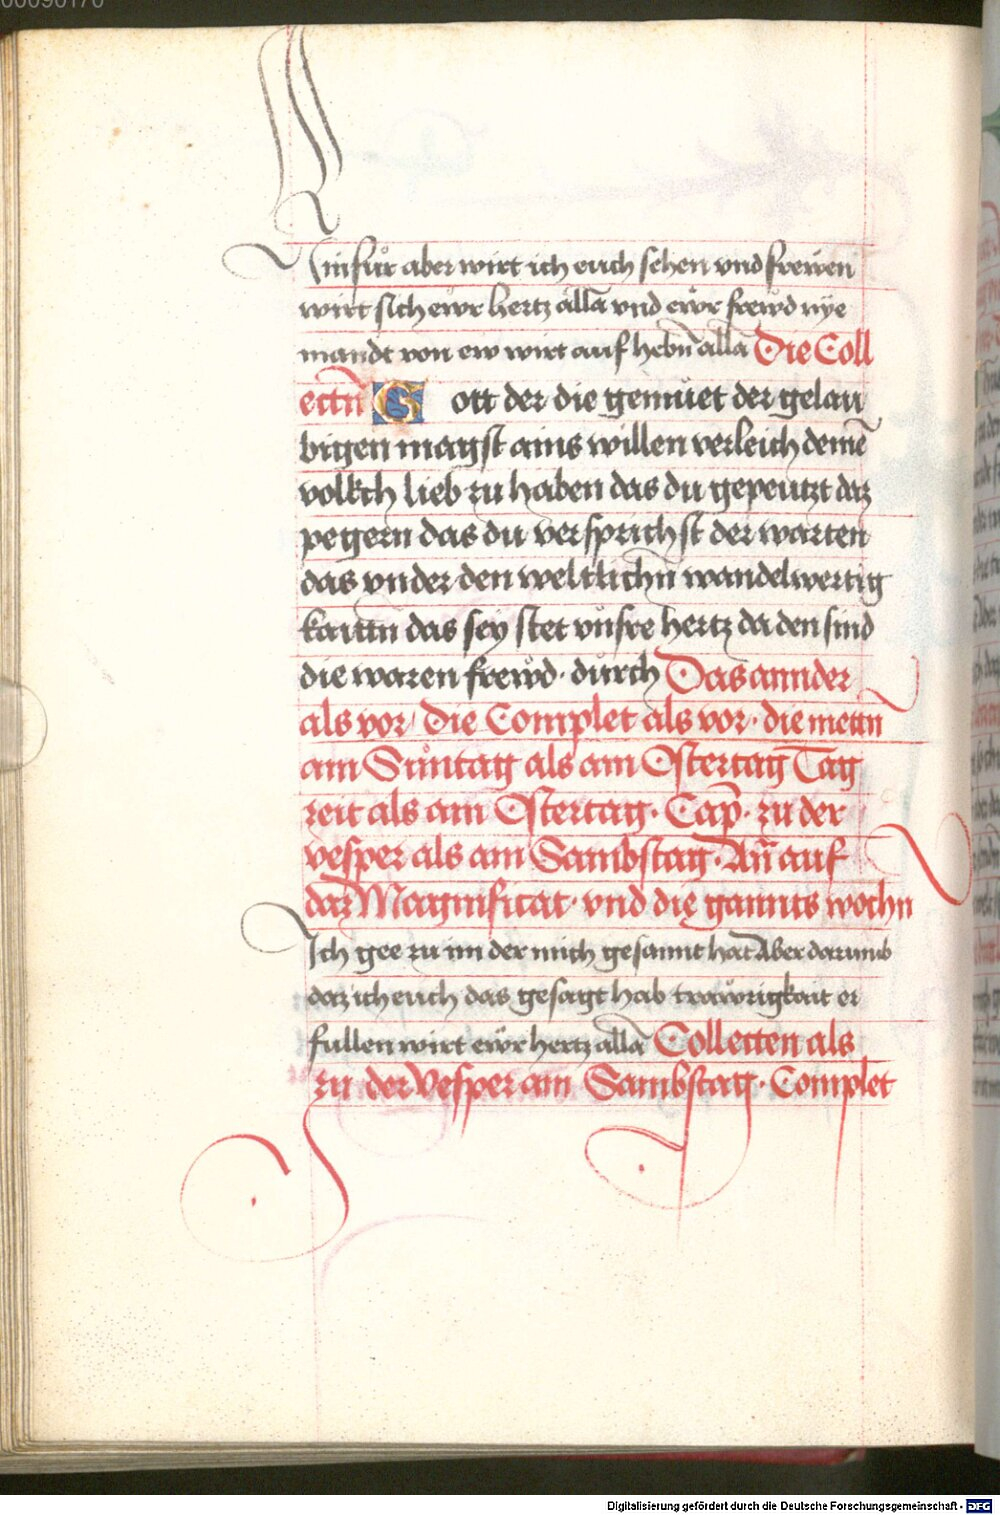 00090170
Hinfür aber wirt ich euch sehen vnd frewen
wirt sich ewr hertz alla vnd ewr frewd nye
mandt von ew wirt auf hebn alla Die Coll
ectn Gott der die gemüet der gelau
bigen magst ains willen verleich deinē
volkch lieb zu haben das du gepeutzt daz
pegern das du versprichst der warten
das vnder den weltlichn wandelwertig
kaittn das sey stet vnsre hertz da den sind
die waren frewd · durch Das annder
als vor / Die Complet als vor · die mettn
am Suntag als am Ostertag Tag
zeit als am Ostertag · Cap̄ · zu der
vesper als am Sambstag · Añ auf
daz Magnificat · vnd die gannts wochn
Ich gee zu im der mich gesannt hat Aber darumb
daz ich euch das gesagt hab trawrigkait er
fullen wirt ewr hertz alla Collecten als
zu der Vesper am Sambstag · Complet
Digitalisierung gefördert durch die Deutsche Forschungsgemeinschaft - DFG